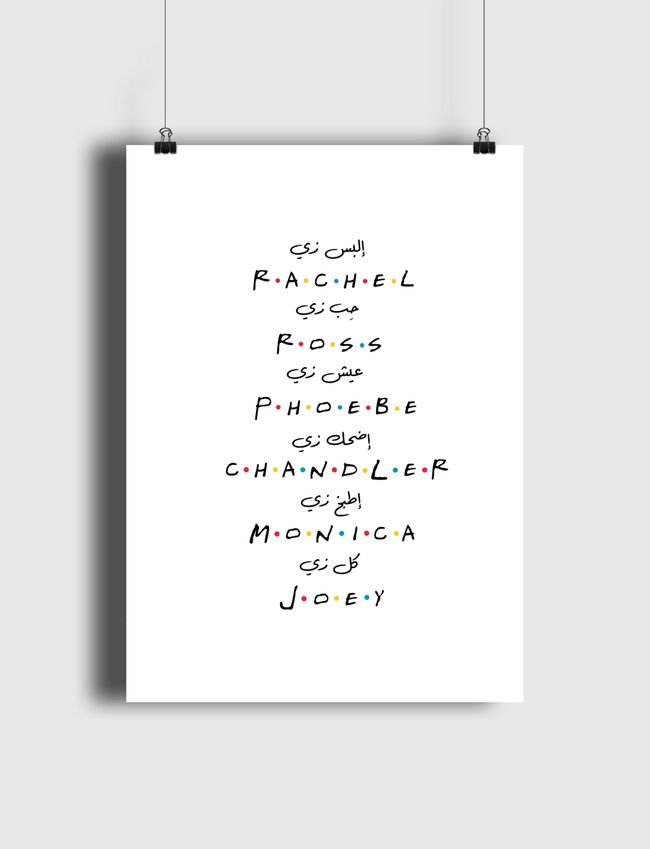 إلبس زي
R•A•C•H•E•L
حِب زي
R•O•S•S
عيش زي
P•H•O•E•B•E
إضحك زي
C•H•A•N•D•L•E•R
إطبخ زي
M•O•N•I•C•A
كل زي
J•O•E•Y